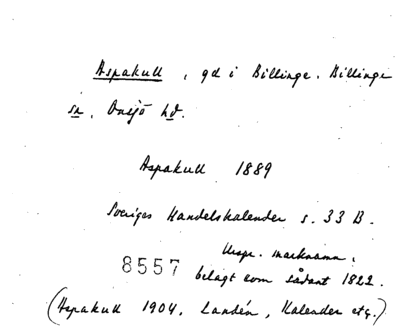 Aspakull, gd i Billinge. Billinge
sn, Onsjö hd.
Aspakull 1889
Sveriges Handelskalender s. 33 B.
Urspr. marknamn,
8557 belagt som sådant 1822.
(Aspakull 1904, Landén, Kalender etc.)